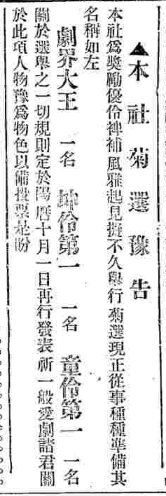 ▲本社菊選豫告
本社爲奬勵優伶裨補風雅起見擬不久舉行菊選現正從事種種準備其
名稱如左
劇界大王 一名 坤伶第一 一名 童伶第一 一名
關於選舉之一切規則定於陽曆十月一日再行發表祈一般愛劇諸君關
於此項人物豫爲物色以備投票是盼